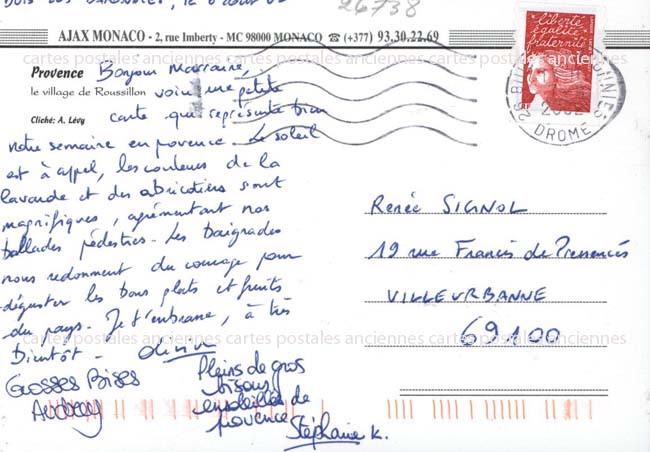 26738
AJAX MONACO - 2, rue Imberty - MC 98000 MONACO ☎ (+377) 93,30,22,69
Provence
le village de Roussillon
Cliché: A. Lévy
Bonjour marraine,
voici une petite
carte qui représente bien
notre semaine en provence. Le soleil
est à l'appel, les couleurs de la
lavande et des abricotiers sont
magnifiques, agrémentant nos
ballades pédestres. Les baignades
nous redonnent du courage pour
déguster les bons plats et fruits
du pays. Je t'embrasse, à très
bientôt -
Grosses Bises
Audrey
Pleins de gros
bisous
ensoleillés de
provence
Stéphanie K.
liberté
égalité
fraternité
DROME
Renée SIGNOL
19 rue Francis de Pressensés
VILLEURBANNE
69100
cartes postales anciennes cartes postales anciennes cartes postales anciennes
cartes postales anciennes cartes postales anciennes cartes postales anciennes